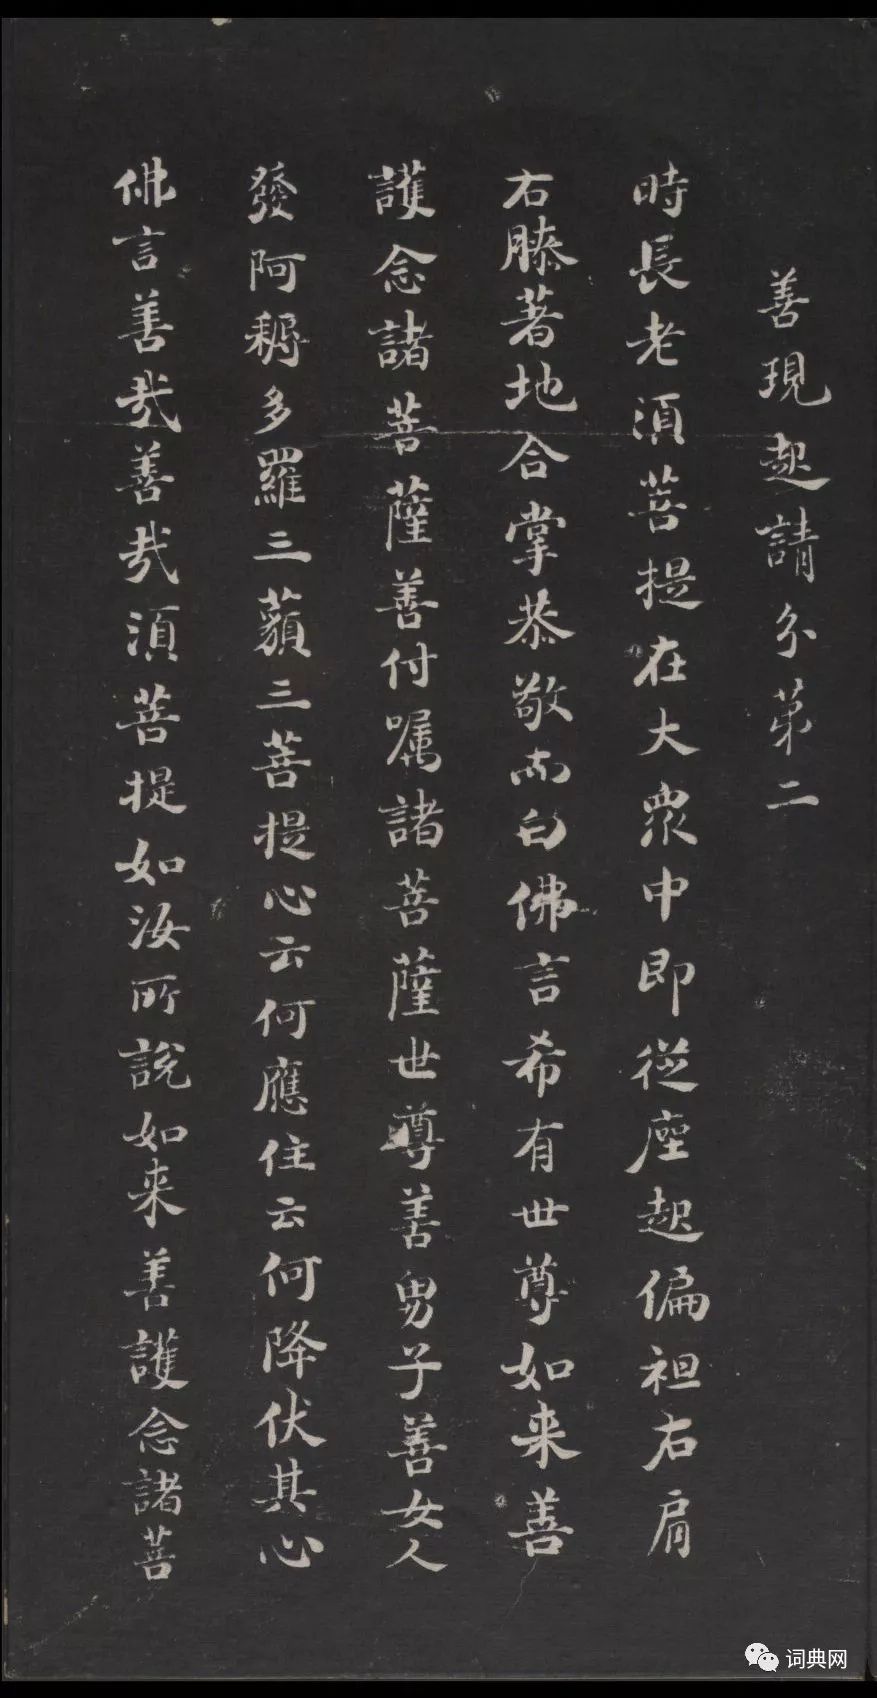 善現起請分第二
時長老須菩提在大衆中即從座起偏袒右肩
右膝著地合掌恭敬而白佛言希有世尊如来善
護念諸菩薩善付嘱諸菩薩世尊善男子善女人
發阿耨多羅三藐三菩提心云何應住云何降伏其心
佛言善哉善哉須菩提如汝所說如来善護念諸菩
词典网